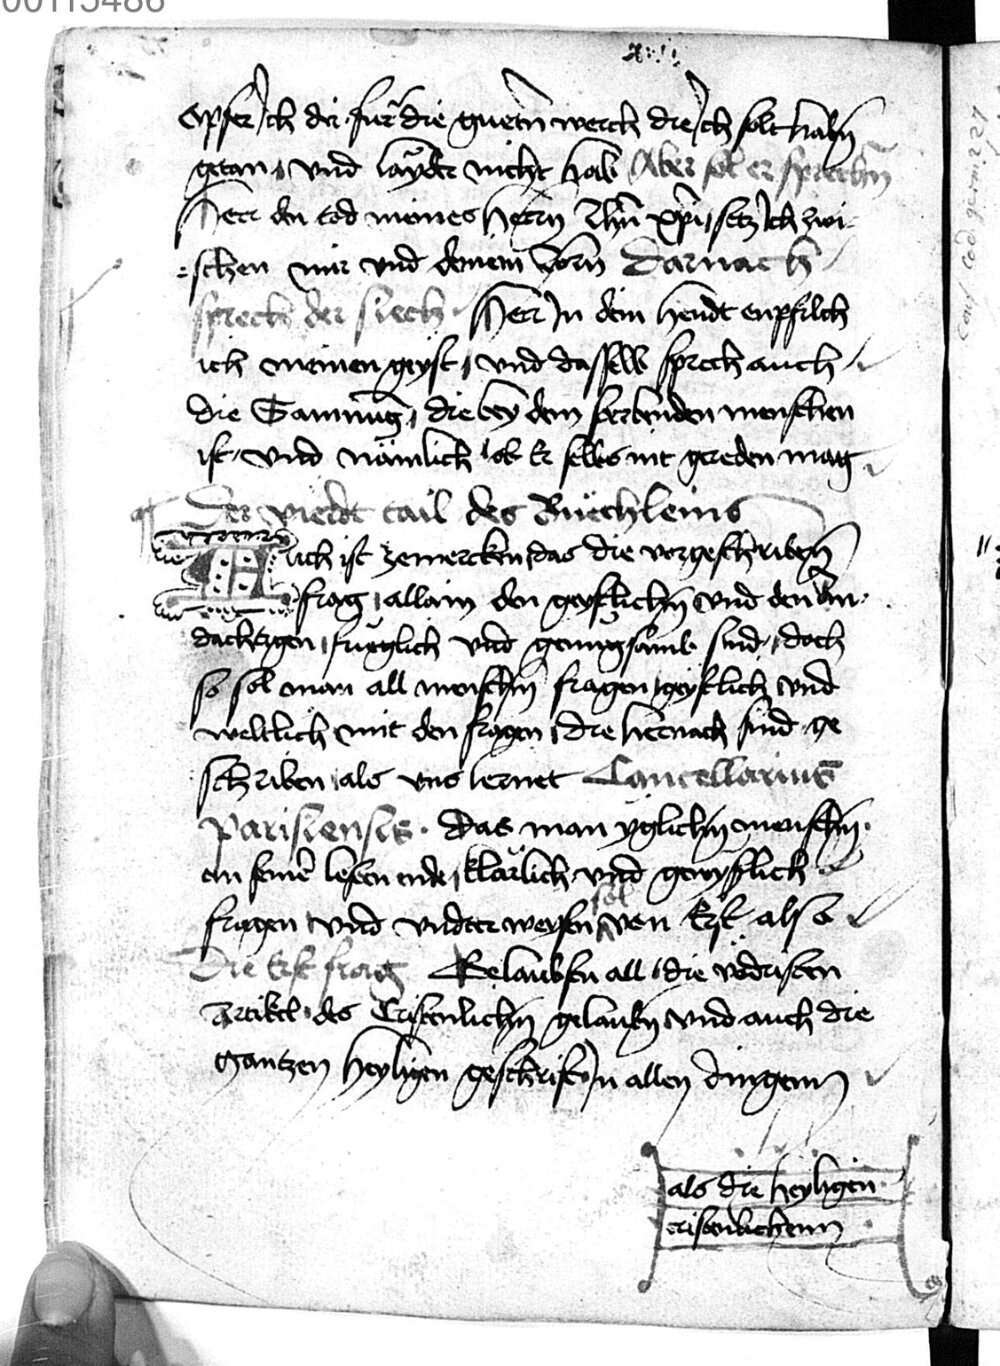 00115486
opfer ich dir für die guetn̄ werch die ich solt habn̄
getan vnd layder nicht hab Aber sol er sprechn̄
Herr den tod meines herrn Jhū xp̄i setz ich zwi
schen mir vnd deinem zorn Darnach
sprech der siech Herr In dein hendt enpfilch
ich meinen geyst vnd dasselb sprech auch
die Samnūg die bey dem sterbenden menschen
ist vnd nämlich ob Er selbs nit gereden mag
Der vierdt tail des Büechleins
Auch ist zemercken das die vorgeschribn̄
frag allain den geystlichn̄ vnd den An
dächtigen füeglich vnd genuogsamb sind doch
so sol man all menschn̄ fragen geystlich vnd
weltlich mit den fragen die hernach sind ge
schriben als vns lernet Cancellarius
Parisiensis. das man yglichn̄ menschn̄
an seinē lesten ende klärlich vnd gewyslich
fragen vnd vnderweysen sol von Erst also
Die Erst frag Gelaubstu all die vodristen
Artikel des Cristenlichn̄ gelaubn̄ vnd auch die
Gantzen heyligen geschrift In allen dingenn
als die heyligen
cristenlichenn